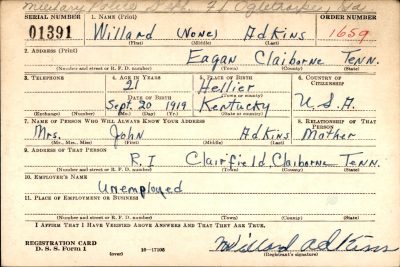 Military Police Ft. Oglethorpe, Ga
SERIAL NUMBER 1. NAME (Print) ORDER NUMBER
01391 Willard (None) Adkins 1659
(First) (Middle) (Last)
2. ADDRESS (Print)
Eagan Claiborne Tenn.
(Number and street or R. F. D. number) (Town) (County) (State)
3. TELEPHONE 4. AGE IN YEARS 5. PLACE OF BIRTH 6. COUNTRY OF CITIZENSHIP
21 Hellier
DATE OF BIRTH (Town or county)
Sept. 20 1919 Kentucky U.S.A.
(Exchange) (Number) (Mo.) (Day) (Yr.) (State or country)
7. NAME OF PERSON WHO WILL ALWAYS KNOW YOUR ADDRESS 8. RELATIONSHIP OF THAT PERSON
Mrs. John Adkins Mother
(Mr., Mrs., Miss) (First) (Middle) (Last)
9. ADDRESS OF THAT PERSON
R.1 Clairfield, Claiborne Tenn.
(Number and street or R. F. D. number) (Town) (County) (State)
10. EMPLOYER'S NAME
Unemployed
11. PLACE OF EMPLOYMENT OR BUSINESS
(Number and street or R. F. D. number) (Town) (County) (State)
I AFFIRM THAT I HAVE VERIFIED ABOVE ANSWERS AND THAT THEY ARE TRUE.
REGISTRATION CARD
D. S. S. Form 1 (over) 16—17105 Willard Adkins
(Registrant's signature)